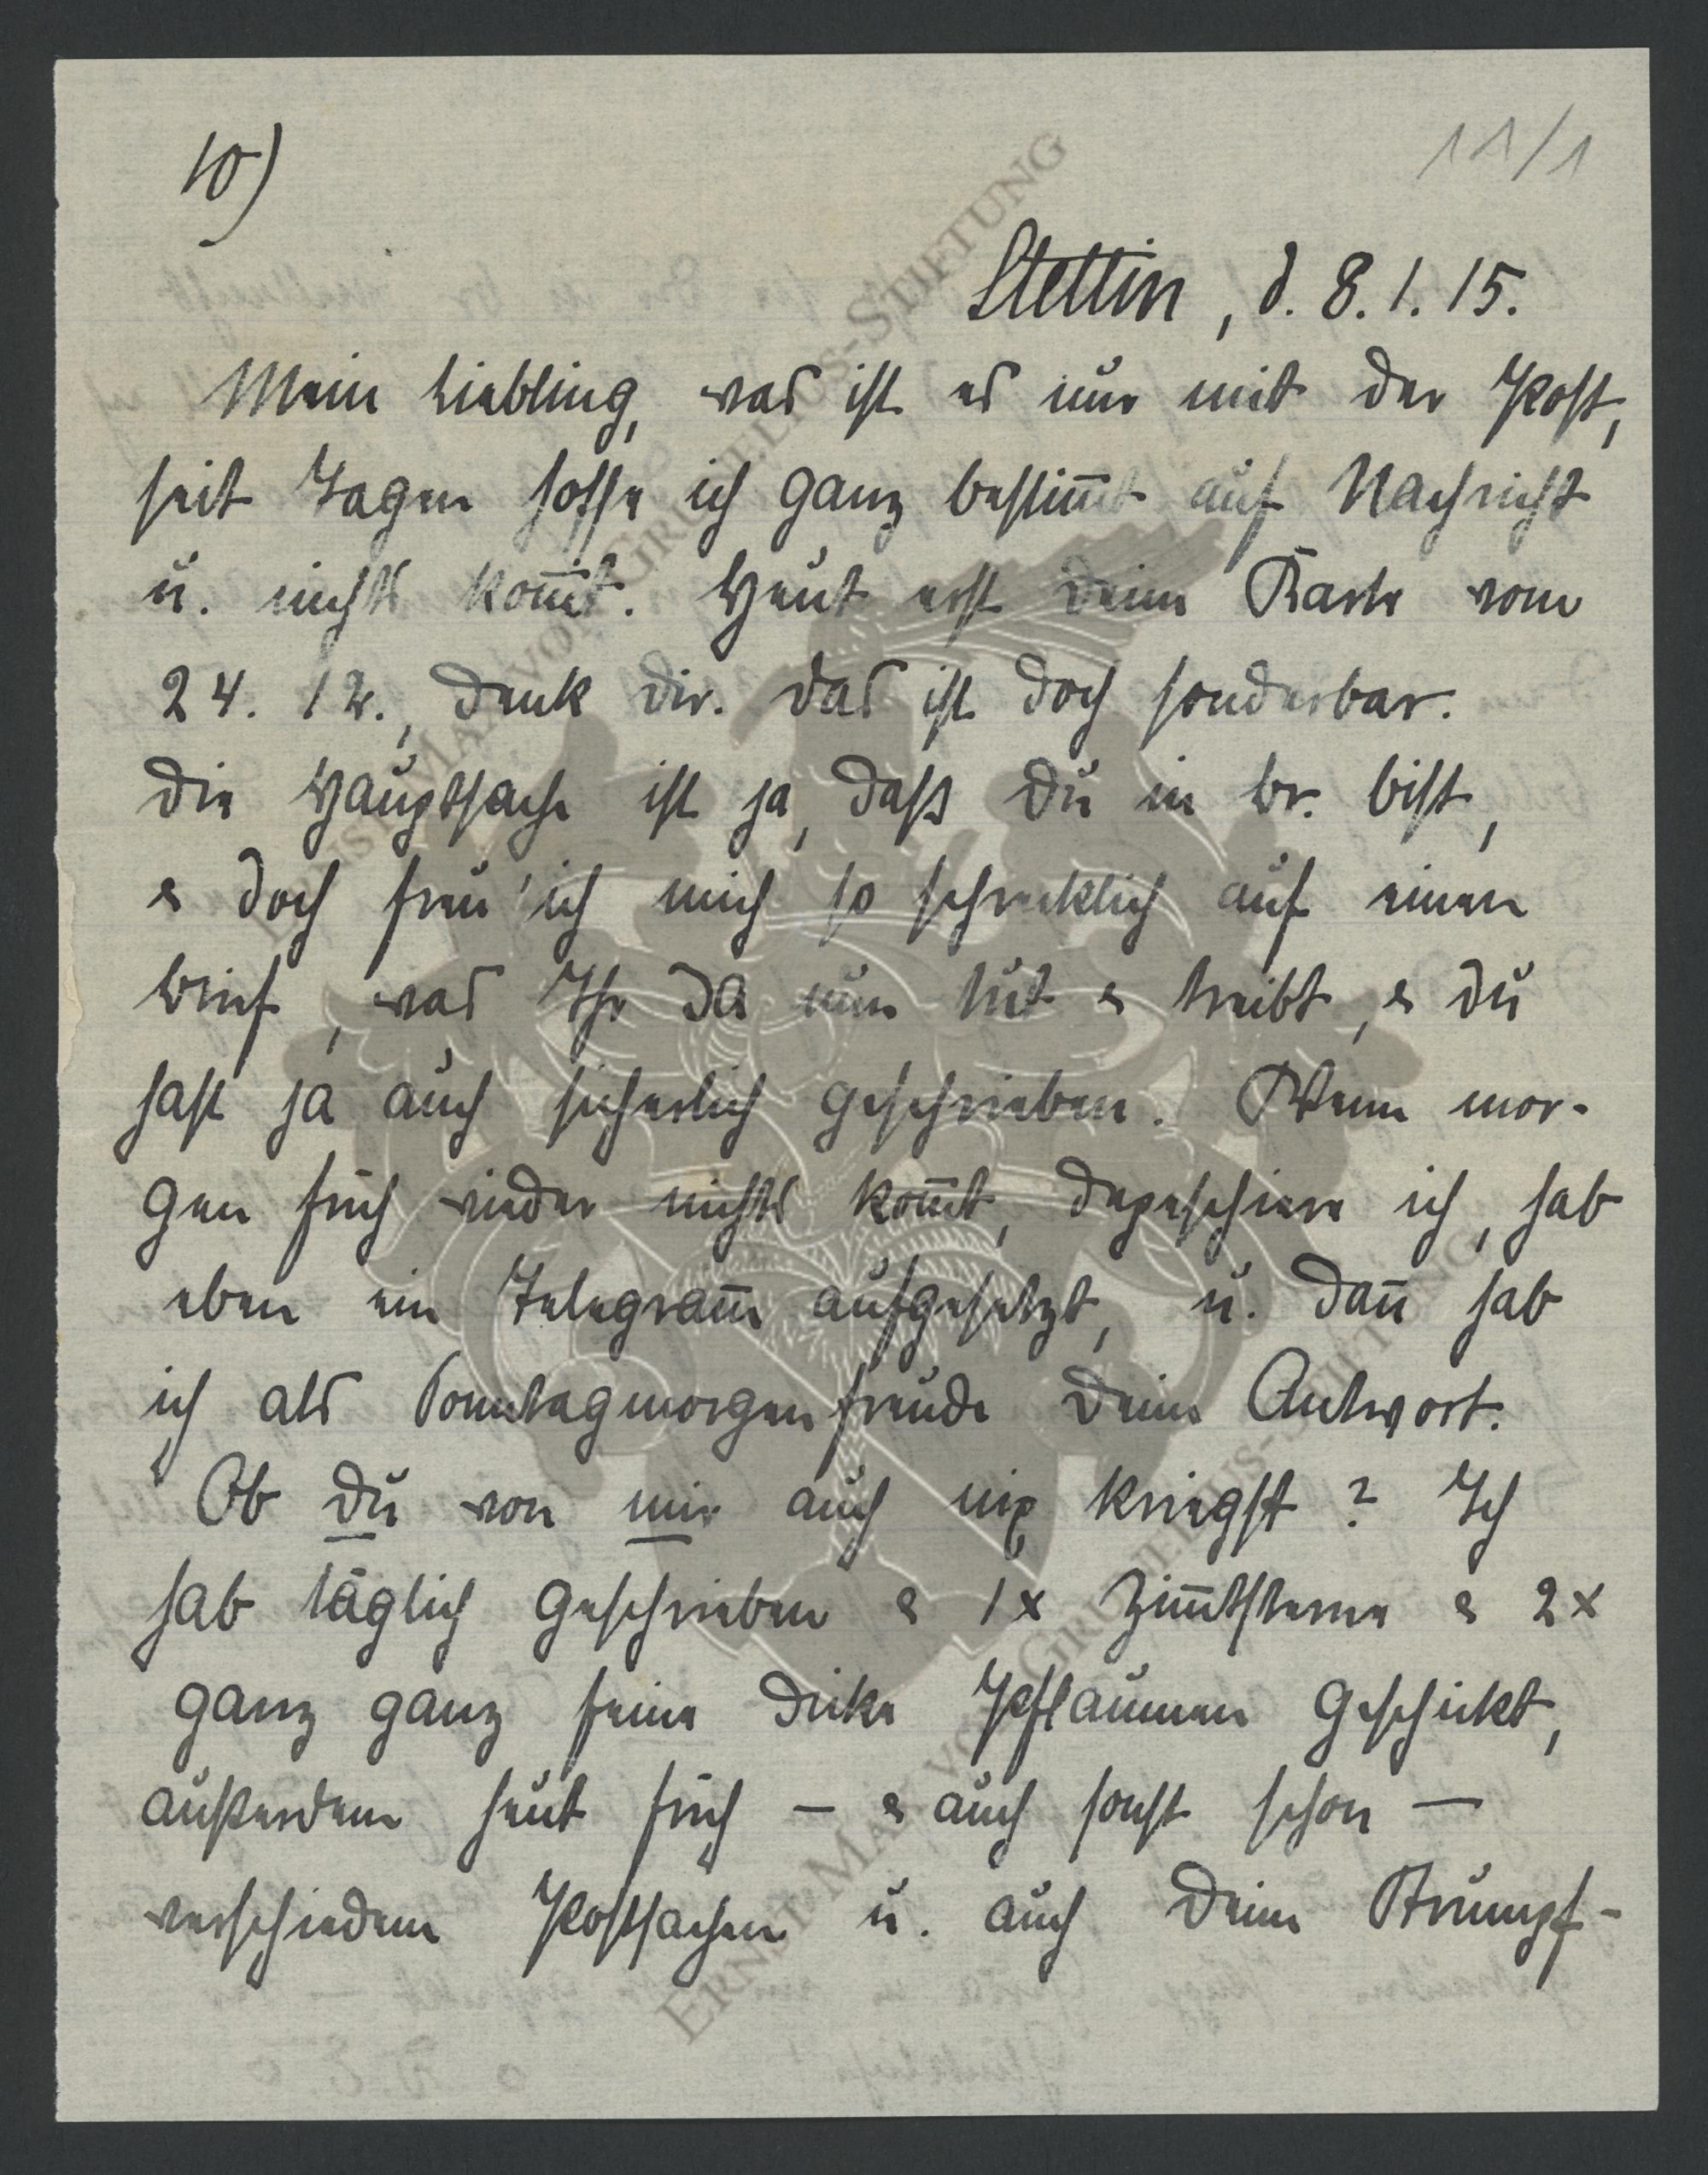 10)
11/1
Stettin, d. 8.1.15.
Mein Liebling, was ist es nur mit der Post,
seit Tagen hoffe ich ganz bestim̄t auf Nachricht
u. nichts kom̄t. Heut erst Deine Karte vom
24. 12., denk Dir. Das ist doch sonderbar.
Die Hauptsache ist ja, daß Du in Br. bist,
& doch freu' ich mich so schrecklich auf einen
Brief, was Ihr da nun tut & treibt, & Du
hast ja auch sicherlich geschrieben. Wenn mor-
gen früh wieder nichts kom̄t, depeschiere ich, hab
eben ein Telegram̄ aufgesetzt, u. dan̄ hab
ich als Sonntagmorgenfreude Deine Antwort.
Ob Du von mir auch nix kriegst? Ich
hab täglich geschrieben & 1x Zim̄tsterne & 2x
ganz ganz feine dicke Pflaumen geschickt,
außerdem heut früh – & auch sonst schon –
verschiedene Postsachen u. auch Deine Strumpf-
ERNST-MAX VON GRUNELIUS-STIFTUNG
ERNST-MAX VON GRUNELIUS-STIFTUNG